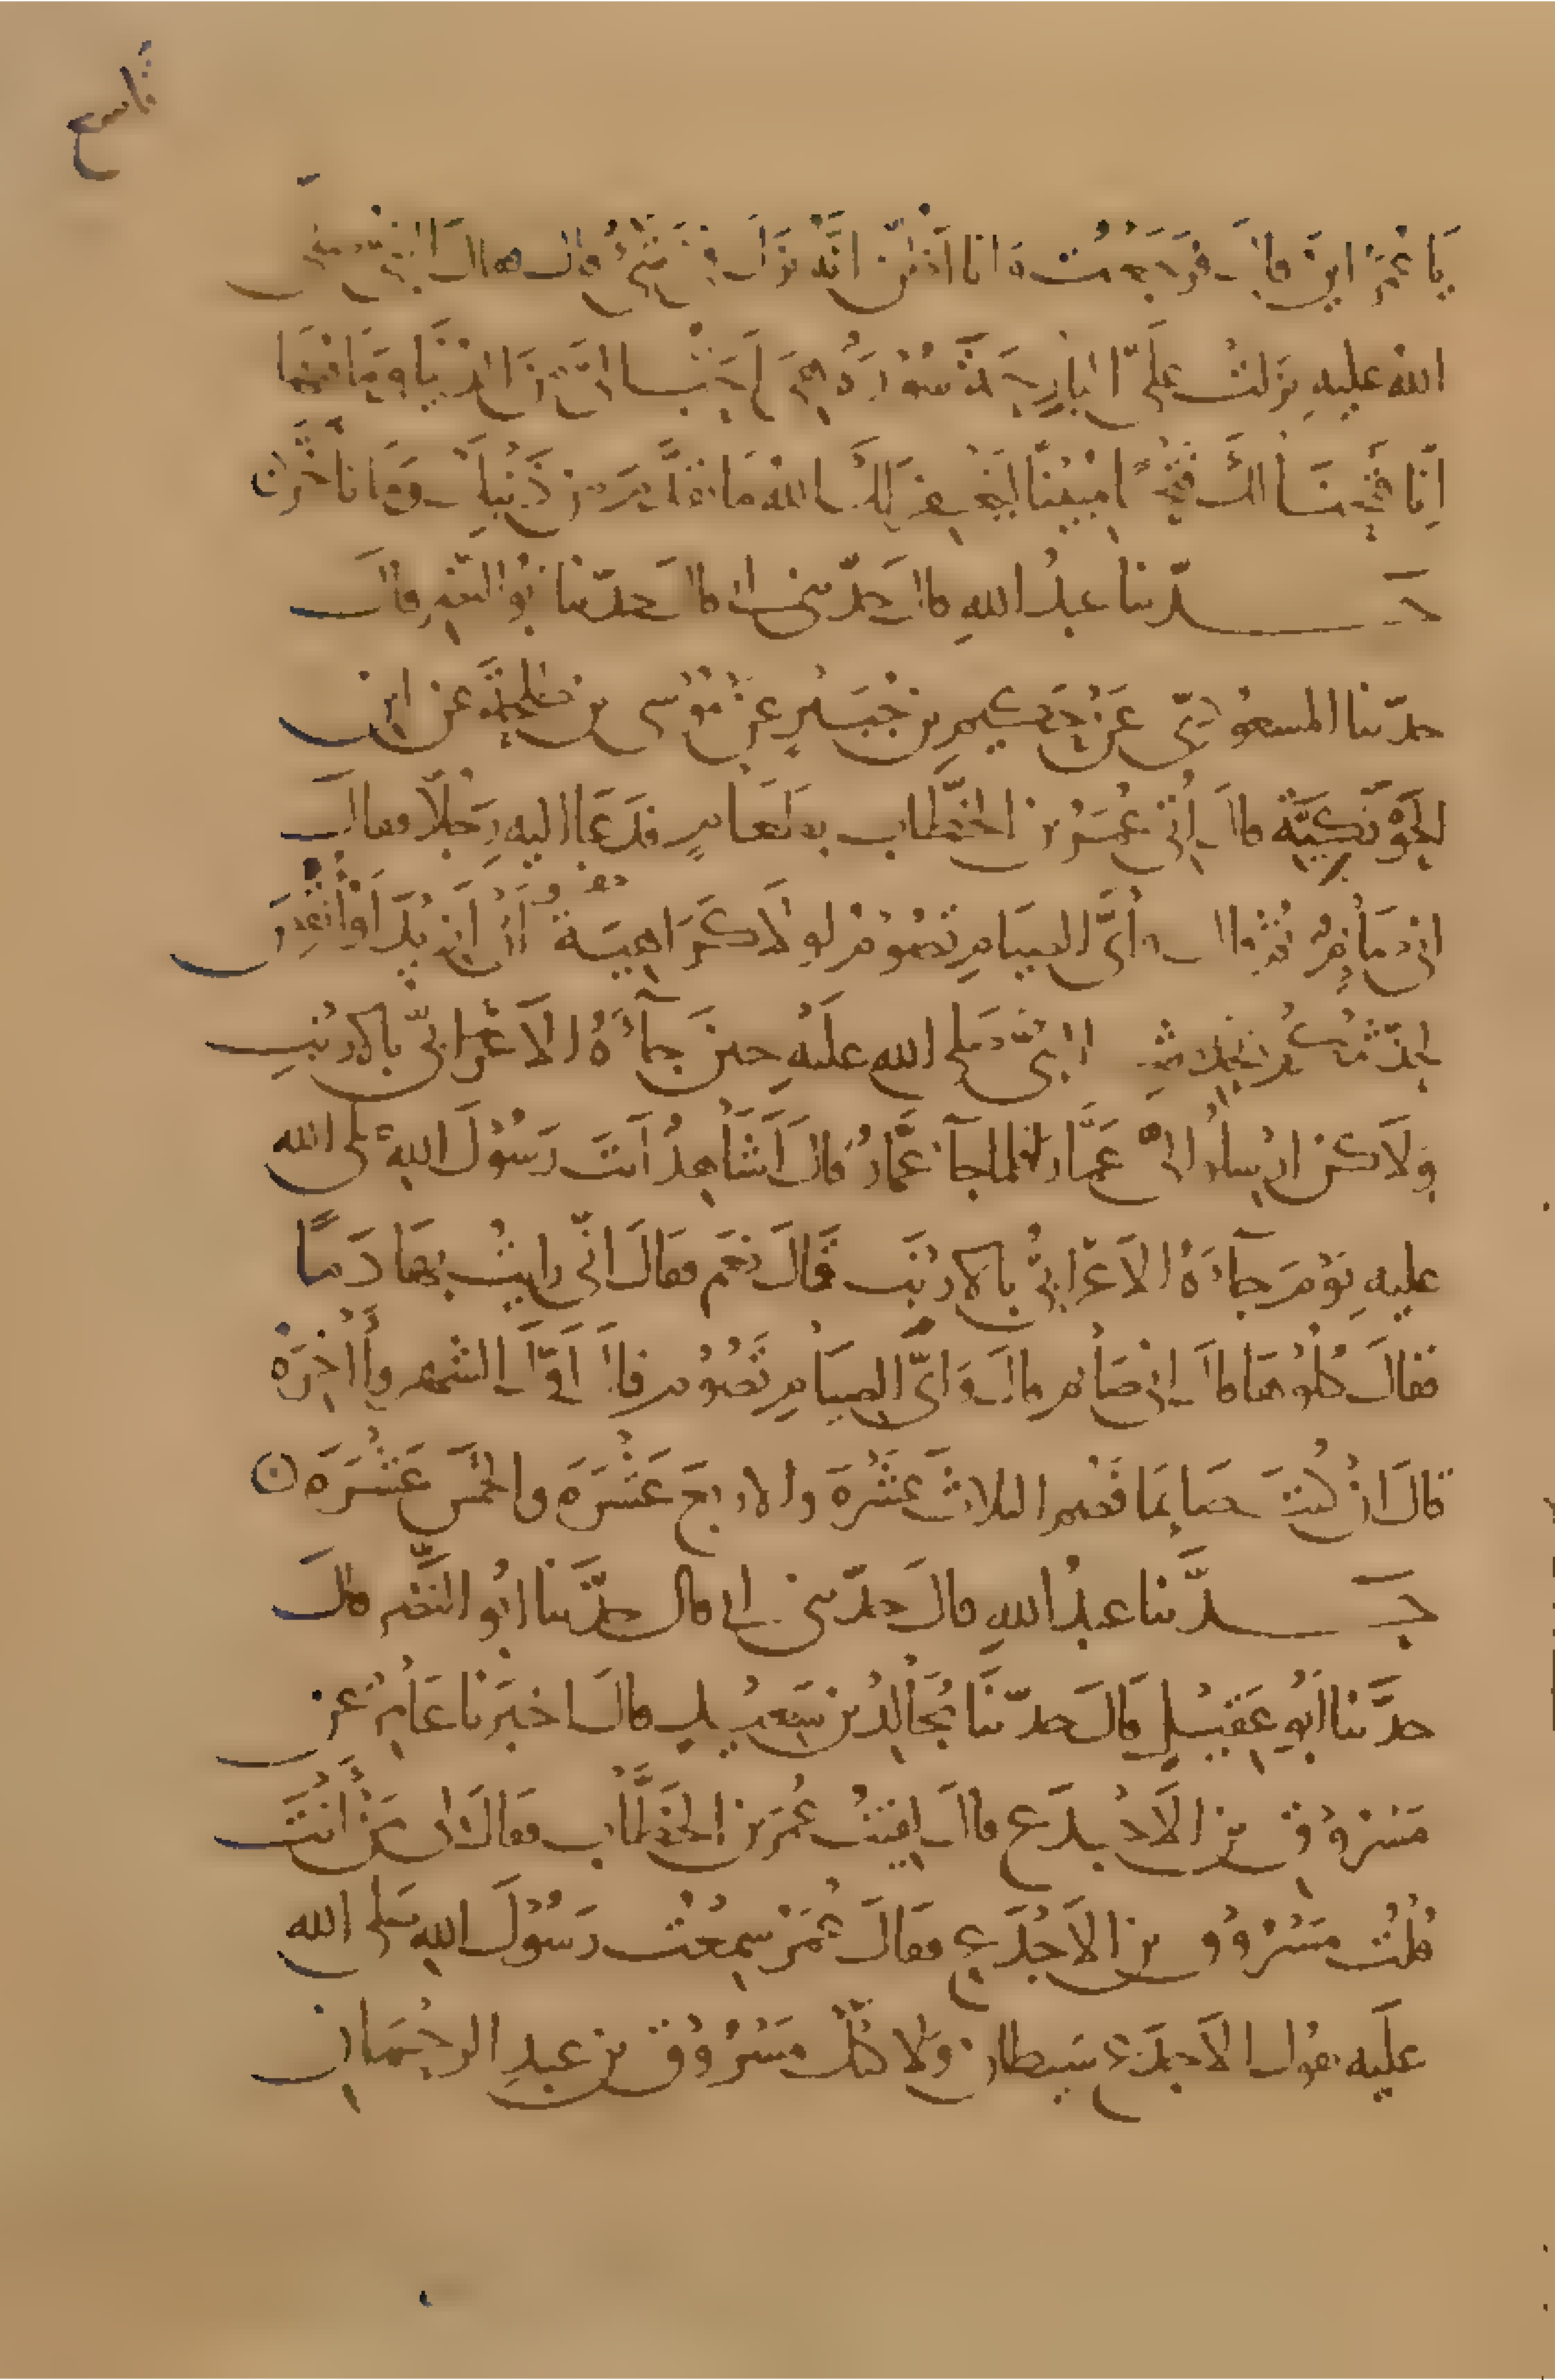 تاسع
يا عمر اين قال فرجعت وانا اظن انه نزل في شيء قال فقال النبي صلى
الله عليه نزلت علي البارحة سورة هي احب الي من الدنيا وما فيها
انا فتحنا لك فتحا مبينا ليغفر لك الله ما تقدم من ذنبك وما تأخر
حدثنا عبد الله قال حدثني ابي قال حدثنا ابو النضر قال
حدثنا المسعودي عن حكيم بن جبير عن موسى بن طلحة عن ابن
الحوتكية قال اتي عمر بن الخطاب بطعام فدعا اليه رجلا فقال
اني صائم ثم قال واي الصيام تصوم لولا كراهية ان ازيد او انقص
لحدثتكم بحديث النبي صلى الله عليه حين جاءه الاعرابي بالارنب
ولاكن ارسلوا الى عمار فلما جاء عمار قال اشاهد انت رسول الله صلى الله
عليه يوم جاءه الاعرابي بالارنب قال نعم فقال اني رايت بها دما
فقال كلوها قال اني صائم قال واي الصيام تصوم قال اول الشهر وآخره
قال ان كنت صايما فصم الثلاث عشرة والاربع عشرة والخمس عشرة
حدثنا عبد الله قال حدثني ابي قال حدثنا ابو النضر قال
حدثنا ابو عقيل قال حدثنا مجالد بن سعيد قال اخبرنا عامر عن
مسروق بن الاجدع قال لقيت عمر بن الخطاب فقال لي من انت
قلت مسروق بن الاجدع فقال عمر سمعت رسول الله صلى الله
عليه يقول الاجدع شيطان ولاكنك مسروق بن عبد الرحمان